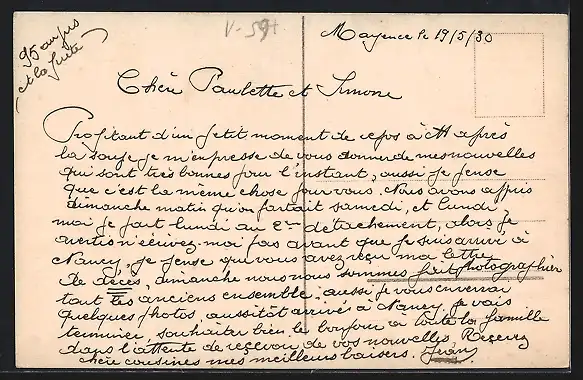 95 au jus
et la fuite
V-59+
Mayence le 19/5/30
Chère Paulette et Simone
Profitant d'un petit moment de repos à après
la soupe je m'empresse de vous donner de mes nouvelles
qui sont très bonnes pour l'instant, aussi je pense
que c'est la même chose pour vous. Nous avons appris
dimanche matin qu'on partait samedi, et lundi
moi je part lundi au 2ème détachement, alors je
averti n'écrivez-moi pas avant que je suis arrivé à
Nancy, je pense que vous avez reçu ma lettre
de décès, dimanche nous nous sommes fait photographier
tout les anciens ensemble, aussi je vous enverrai
quelques photos, aussitôt arrivés à Nancy, je vais
terminer, souhaiter bien le bonjour à toute la famille
dans l'attente de recevoir de vos nouvelles, Recevez
chère cousines mes meilleurs baisers. Jean